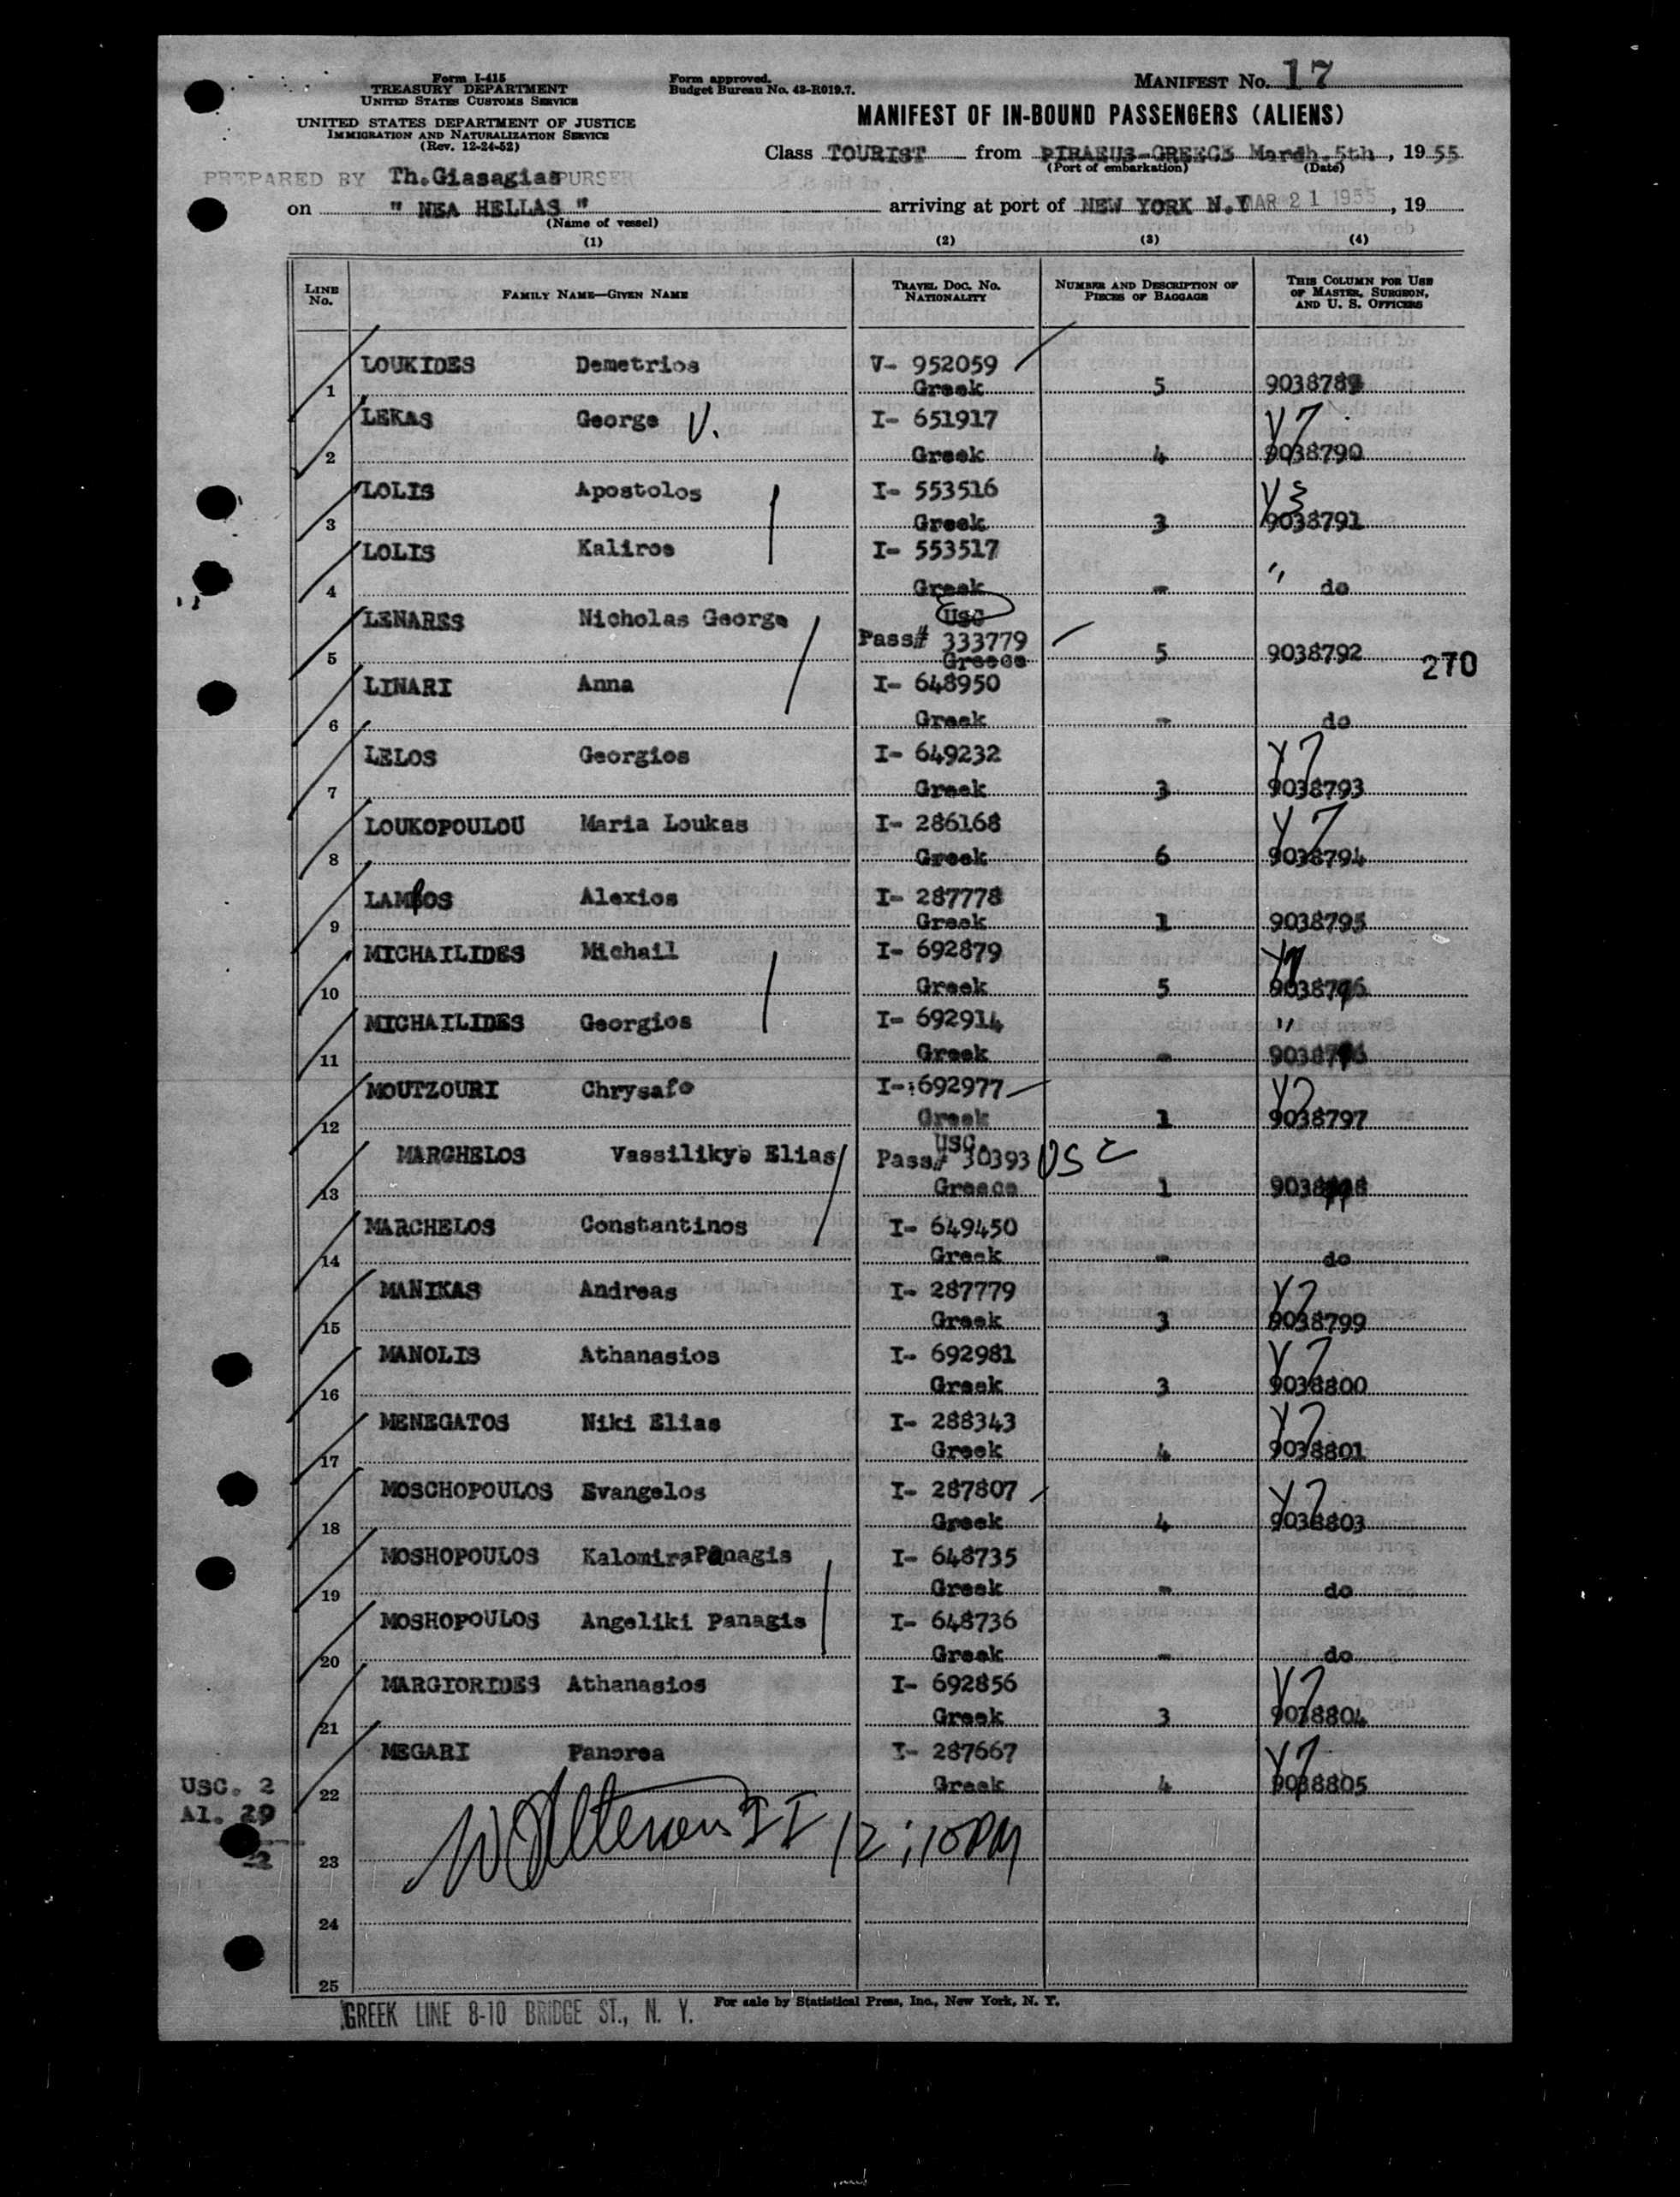 Form I-415
TREASURY DEPARTMENT
UNITED STATES CUSTOMS SERVICE
UNITED STATES DEPARTMENT OF JUSTICE
IMMIGRATION AND NATURALIZATION SERVICE
(Rev. 12-24-52)
Form approved.
Budget Bureau No. 43-R019.7.
MANIFEST NO. 17
MANIFEST OF IN-BOUND PASSENGERS (ALIENS)
Class TOURIST from PIRAEUS-GREECE March 5th, 19 55
(Port of embarkation) (Date)
PREPARED BY Th.Giasagias PURSER
on " NEA HELLAS " arriving at port of NEW YORK N.Y MAR 21 1955, 19
(Name of vessel)
(1) (2) (3) (4)
LINE No. FAMILY NAME—GIVEN NAME TRAVEL DOC. NO. NATIONALITY NUMBER AND DESCRIPTION OF PIECES OF BAGGAGE THIS COLUMN FOR USE OF MASTER, SURGEON, AND U. S. OFFICERS
LOUKIDES Demetrios V- 952059
1 Greek 5 9038789
LEKAS George V. I- 651917 V7
2 Greek 4 9038790
LOLIS Apostolos I- 553516 V3
3 Greek 3 9038791
LOLIS Kaliroe I- 553517 "
4 Greek - do
LENARES Nicholas George USC
Pass# 333779
5 Greece 5 9038792 270
LINARI Anna I- 648950
6 Greek - do
LELOS Georgios I- 649232 V7
7 Greek 3 9038793
LOUKOPOULOU Maria Loukas I- 286168 V7
8 Greek 6 9038794
LAMBOS Alexios I- 287778
9 Greek 1 9038795
MICHAILIDES Michail I- 692879 V7
10 Greek 5 9038796
MICHAILIDES Georgios I- 692914 "
11 Greek - 9038796
MOUTZOURI Chrysafo I- 692977 V7
12 Greek 1 9038797
USC
MARGHELOS Vassilikys Elias Pass# 30393 USC
13 Greece 1
MARCHELOS Constantinos I- 649450
14 Greek - do
MANIKAS Andreas I- 287779 V7
15 Greek 3 9038799
MANOLIS Athanasios I- 692981 V7
16 Greek 3 9038800
MENEGATOS Niki Elias I- 288343 V7
17 Greek 4 9038801
MOSCHOPOULOS Evangelos I- 287807 V7
18 Greek 4 9038803
MOSHOPOULOS Kalomira Panagis I- 648735
19 Greek - do
MOSHOPOULOS Angeliki Panagis I- 648736
20 Greek - do
MARGIORIDES Athanasios I- 692856 V7
21 Greek 3 9038804
MEGARI Panorea I- 287667 V7
22 Greek 4 9038805
USC. 2
Al. 29
2
II 12:10PM
23
24
25
GREEK LINE 8-10 BRIDGE ST., N. Y.
For sale by Statistical Press, Inc., New York, N. Y.